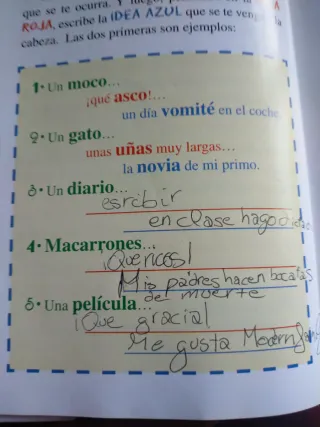 que se te ocurra. Y luego,
ROJA, escribe la IDEA AZUL que se te venga a la
cabeza. Las dos primeras son ejemplos:
1· Un moco...
¡qué asco!...
un día vomité en el coche.
2· Un gato...
unas uñas muy largas...
la novia de mi primo.
3· Un diario...
escribir
en clase hago
4· Macarrones...
¡Que ricos!
Mis padres hacen bocatas
del muerte
5· Una película...
¡Que gracia!
Me gusta Modern